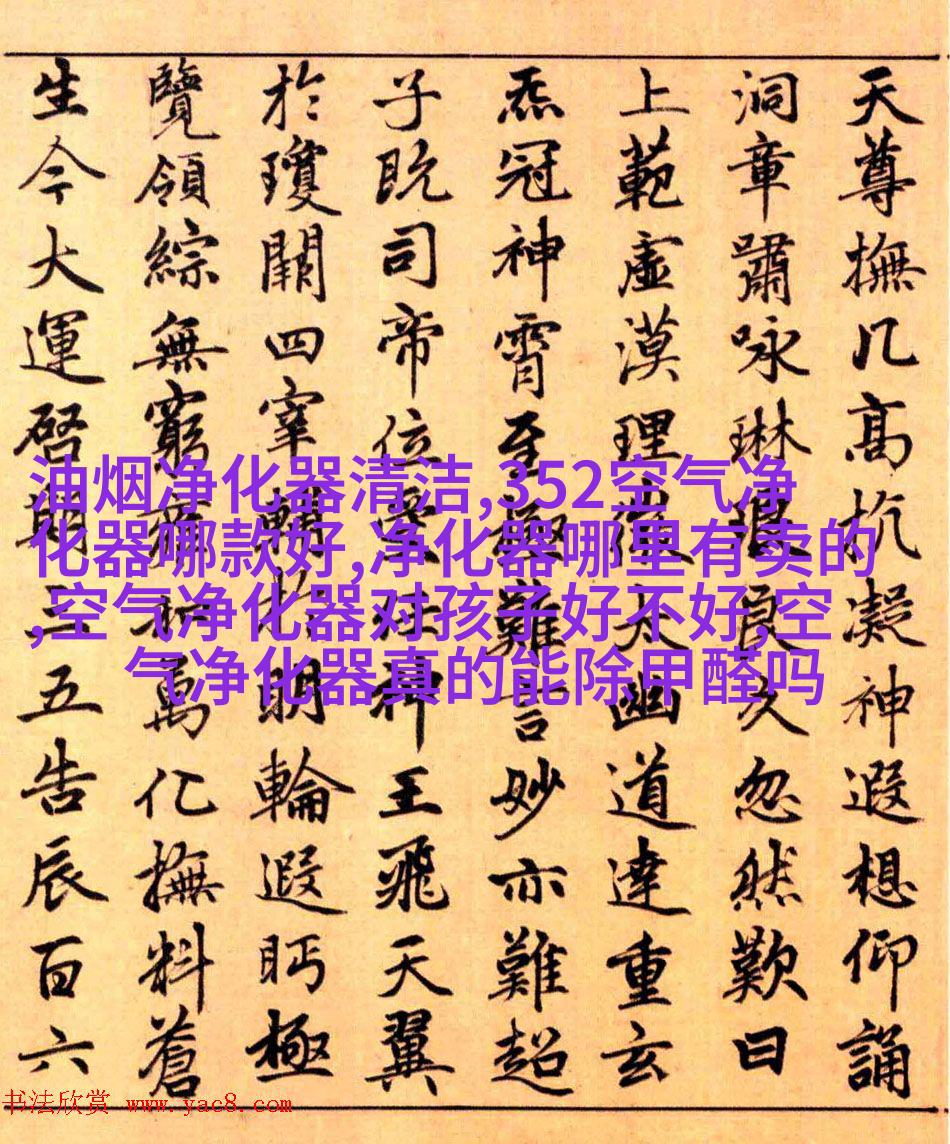 天尊撫几高抗凝神遐想仰誦
洞章嘯咏琳琅良久忽然歎曰
上範虛漠理微太幽道達重玄
炁冠神霄至極難言妙亦難超
子既司帝位神王飛天翼
於瓊闕四宰輔明輪遐眄極
覽領綜無窮萬化撫料蒼
生今大運啓期三五告辰百六
油烟净化器清洁,352空气净
化器哪款好,净化器哪里有卖的
,空气净化器对孩子好不好,空
气净化器真的能除甲醛吗
书法欣赏 www.yac8.com